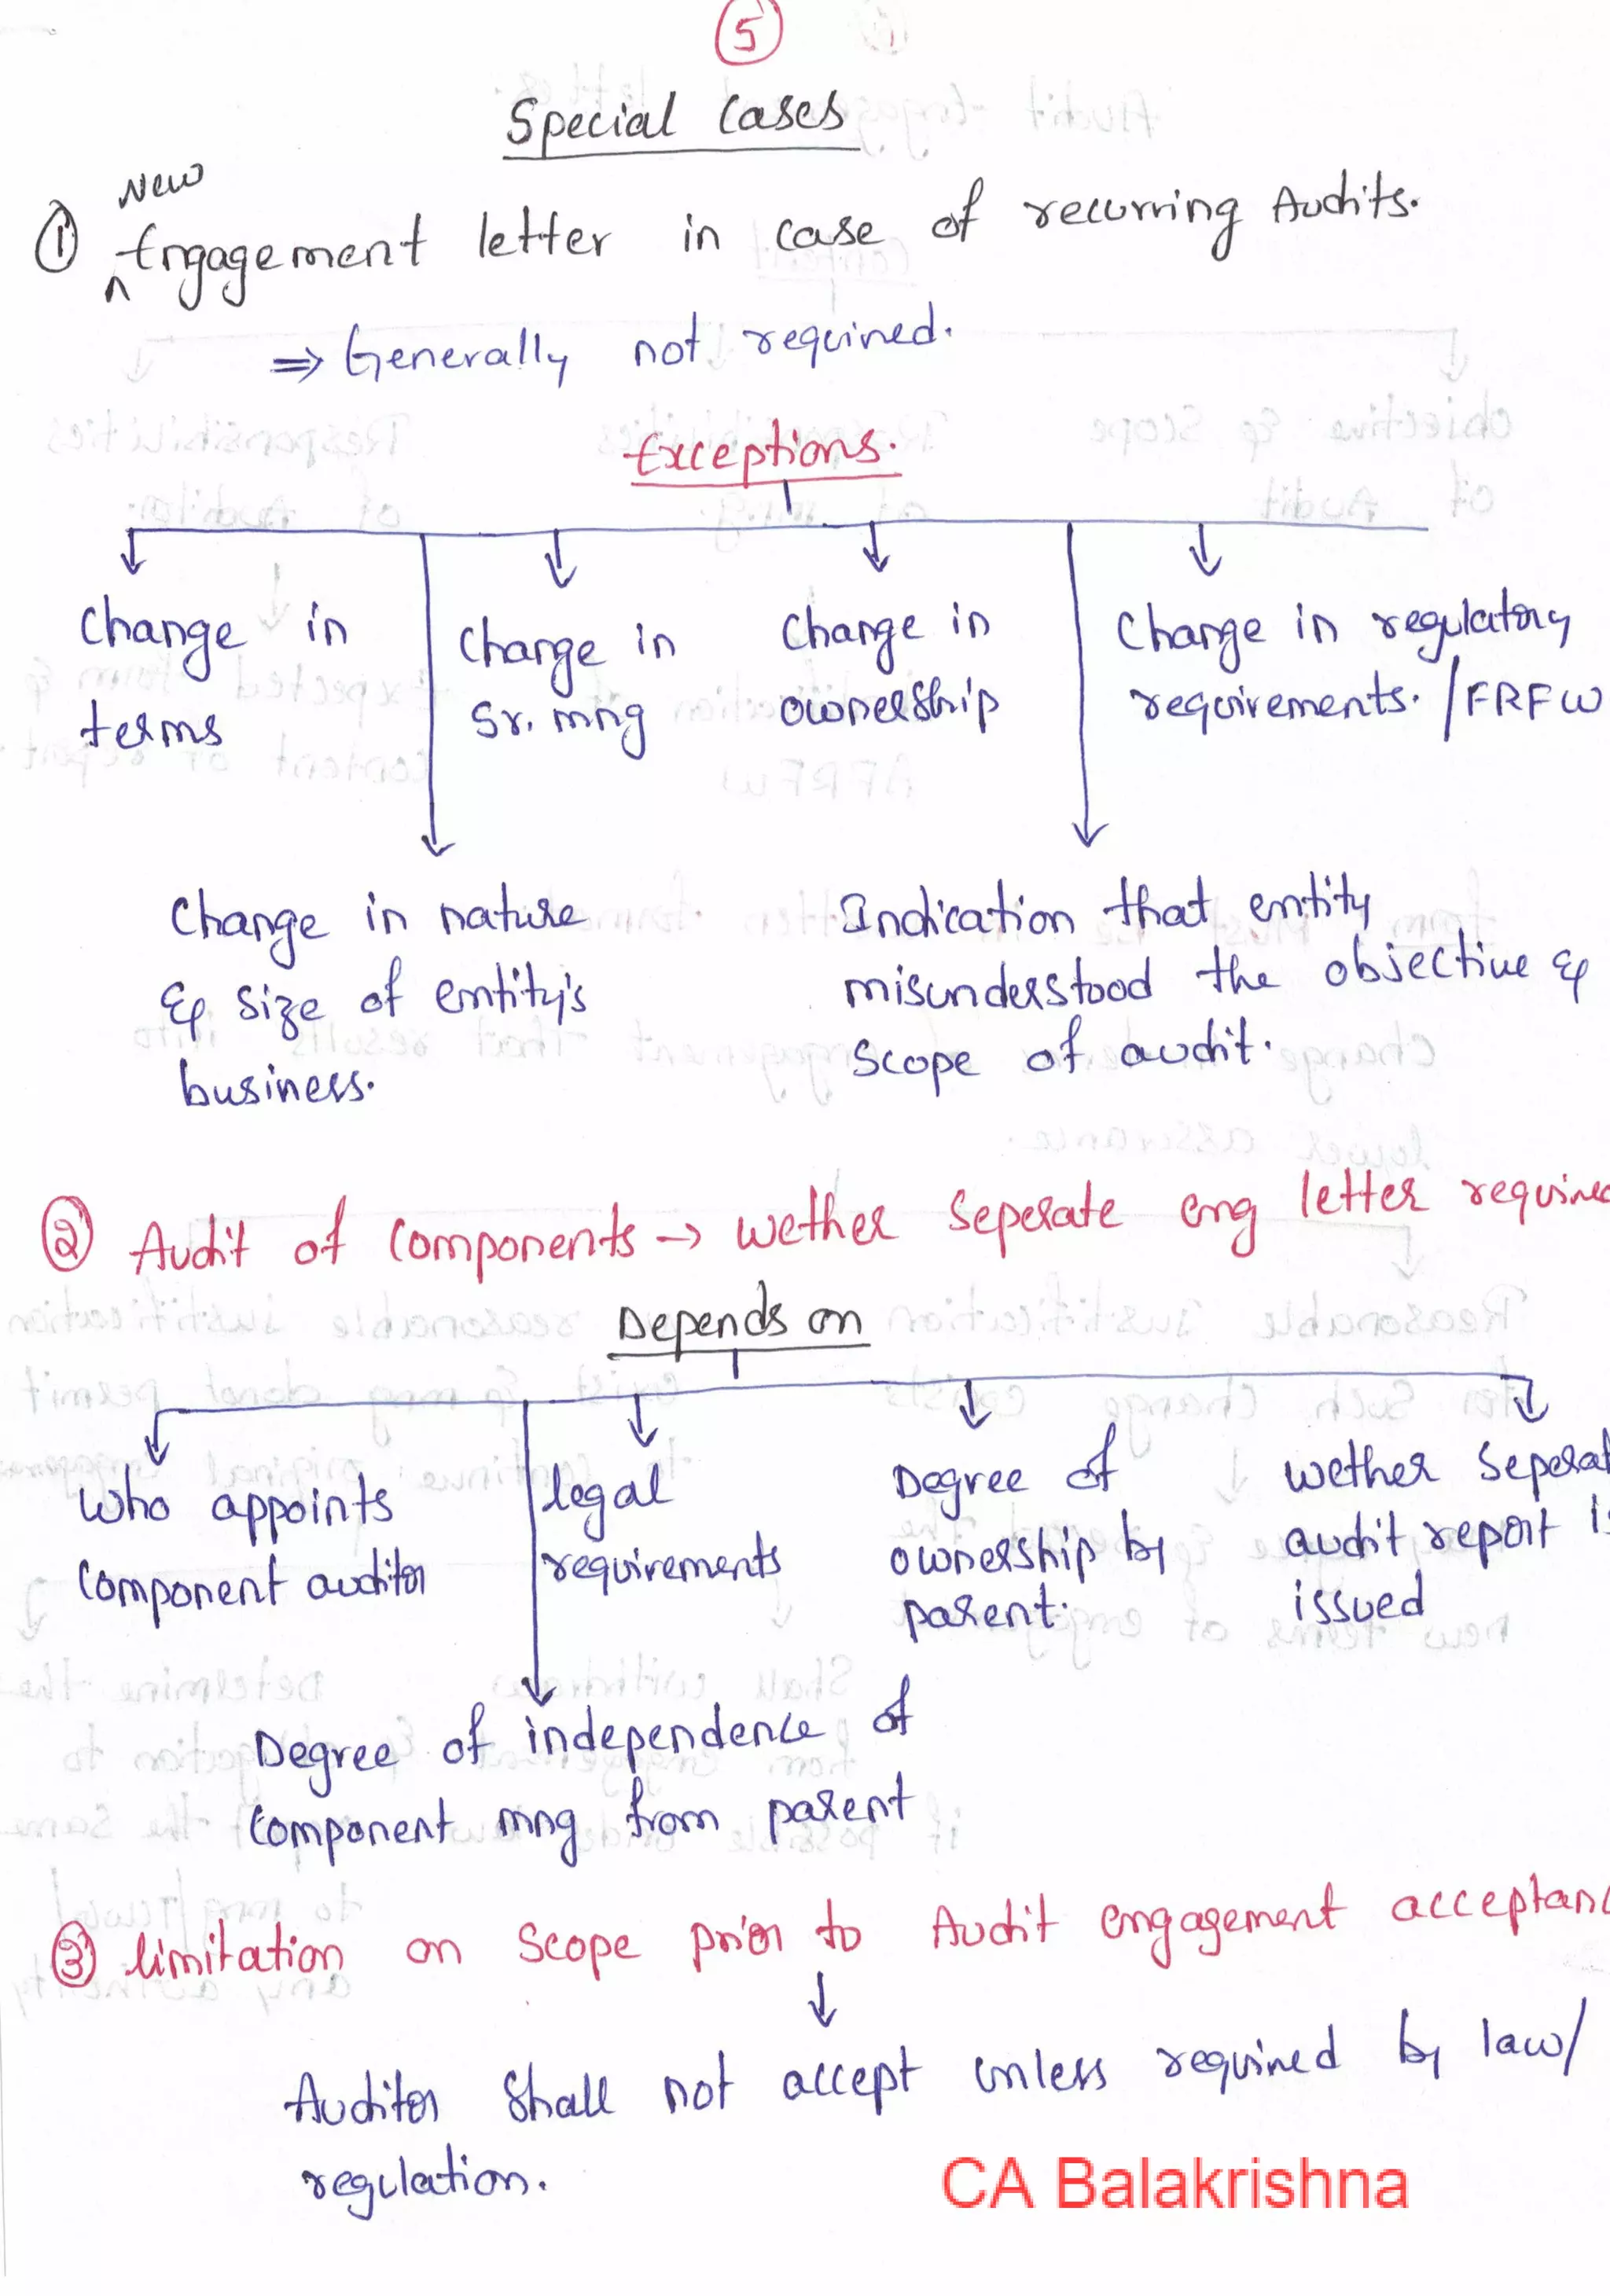 5
Special Cases
New
① Engagement letter in case of recurring Audits.
⇒ Generally not required.
Exceptions.
Change in
terms
Change in
Sr. mng
Change in
ownership
Change in regulatory
requirements. / FRFW
Change in nature
& size of entity's
business.
Indication that entity
misunderstood the objective &
scope of audit.
② Audit of Components → wether seperate eng letter required
Depends on
Who appoints
Component auditor
legal
requirements
Degree of
ownership by
parent.
wether seperat
audit report is
issued
Degree of independence of
Component mng from parent
③ limitation on scope prior to Audit engagement acceptanc
Auditor shall not accept unless required by law/
regulation.
CA Balakrishna